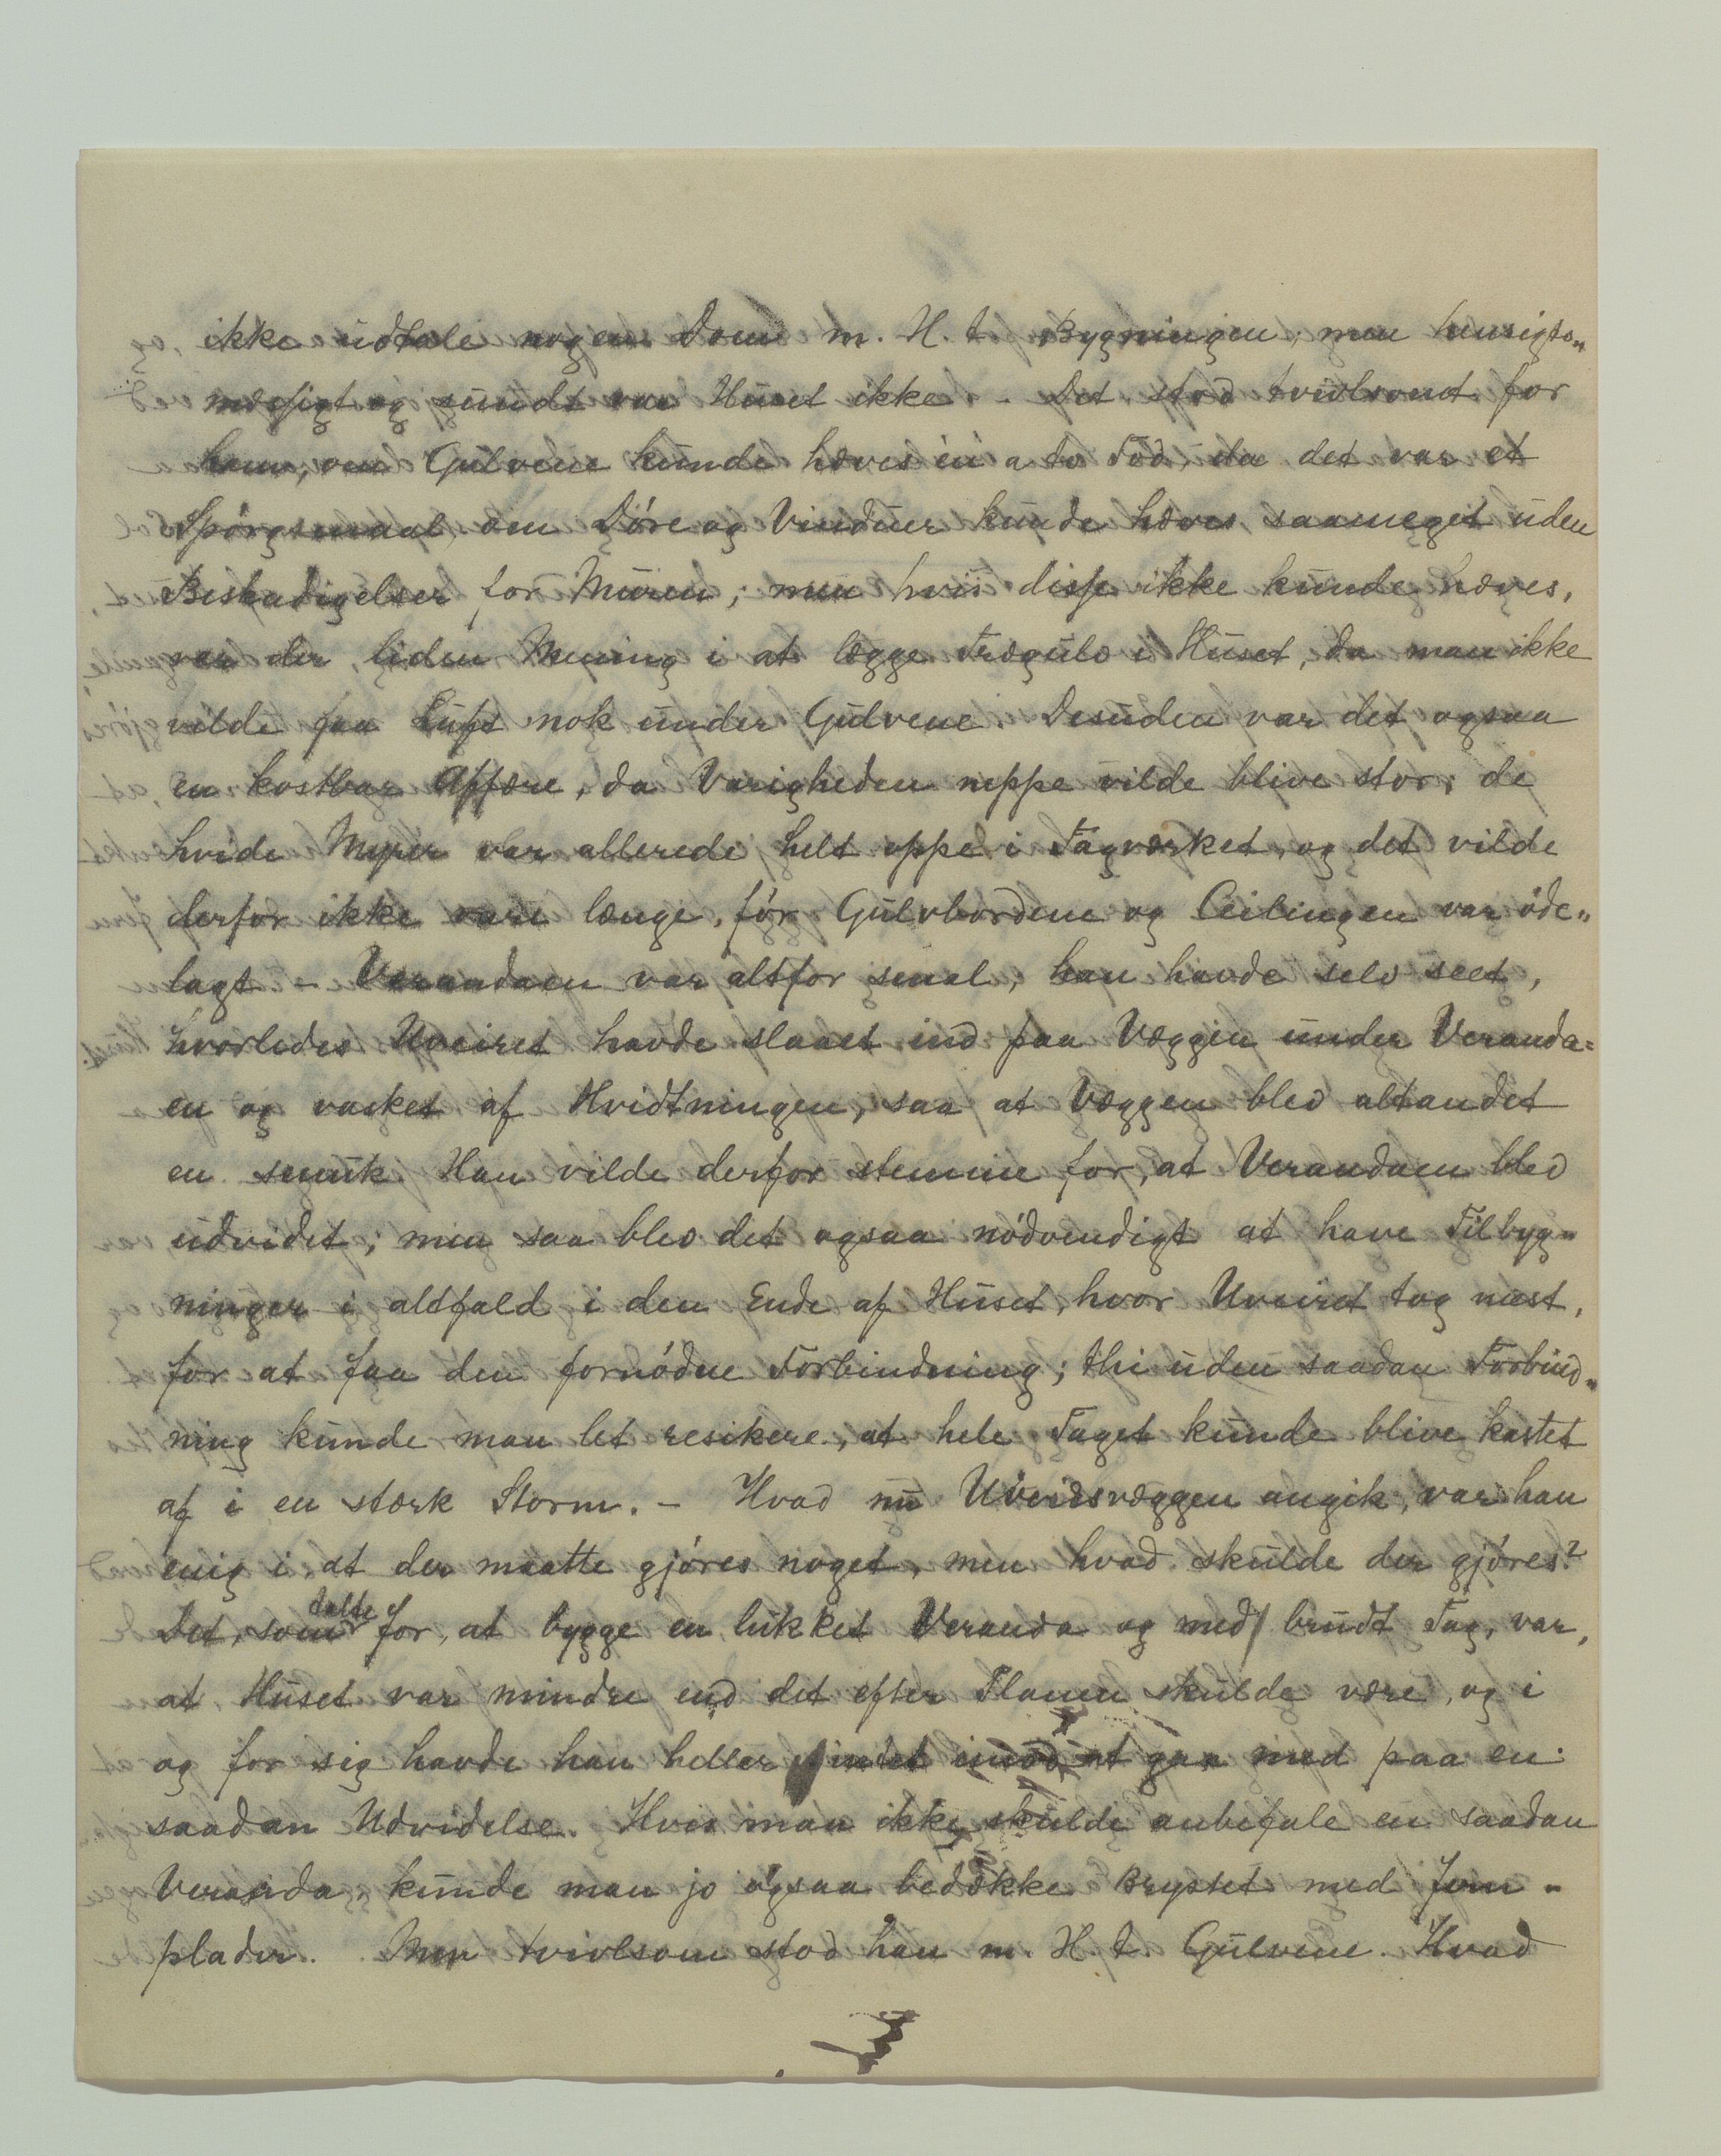 ikke udtale nogen Dom m. H. t. Bygningen; men hensigts„
mæssigt og sundt var Huset ikke. - Det stod tvivlsomt for
ham, om Gulvene kunde hæves én a to Fod, da det var et
Spörgsmaal, om Döre og Vinduer kunde hæves saameget uden
Beskadigelser for Muren; men hvis disse ikke kunde hæves,
var der liden Mening i at lægge Trægulv i Huset, da man ikke
vilde faa Luft nok under Gulvene. Desuden var det ogsaa
en kostbar Affære, da Varigheden neppe vilde blive stor; de
hvide Myrer var allerede helt oppe i Tagværket, og det vilde
derfor ikke vare længe, för Gulvbordene og Ceilingen var öde„
lagt - Verandaen var altfor smal; han havde selv seet,
hvorledes Uveiret havde slaaet ind paa Væggen under Veranda=
en og vasket af Hvidtningen, saa at Væggen blev altandet
en smuk. Han vilde derfor stemme for, at Verandaen blev
udvidet; men saa blev det ogsaa nödvendigt at have Tilbyg„
ninger i altfald i den Ende af Huset, hvor Uveiret tog mest,
for at faa den fornödne Forbindning; thi uden saadan Forbind„
ning kunde man let resikere, at hele Taget kunde blive kastet
af i en stærk Storm. - Hvad nu Uveirsvæggen angik, var han
enig i, at der maatte gjöres noget, men hvad skulde der gjöres?
Det, som talte for, at bygge en lukket Veranda og med brudt Tag, var,
at Huset var mindre end det efter Planen skulde være, og i
og for sig havde han heller intet imod at gaa med paa en
saadan Udvidelse. Hvis man ikke skulde anbefale en saadan
Veranda, kunde man jo ogsaa bedække Brystet med Jern -
plader. Mer tvivlsom stod han m. H. t. Gulvene. Hvad